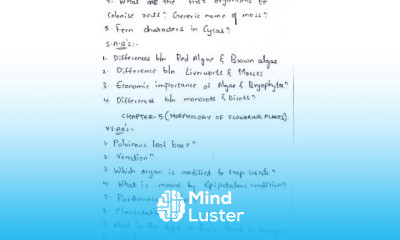 4. What are the first organisms to
Colonise rocks? Generic name of moss?
5. Fern characters in Cycas?
S.A.Q's:-
1. Differences b/n Red Algae & Brown algae
2. Difference b/n Liverworts & Mosses
3. Economic importance of Algae & Bryophytes"
4. Differences b/n monocots & Dicots?
CHAPTER-5 (MORPHOLOGY OF FLOWERING PLANTS).
V.S.AQ's:-
1. Pulvinous leaf base"
2. Venation"
3. Which organ is modified to trap insects"
4. What is meant by Epipetalous condition?
5.
6.
7. What is the type of fruit found in mango
Mind
Luster